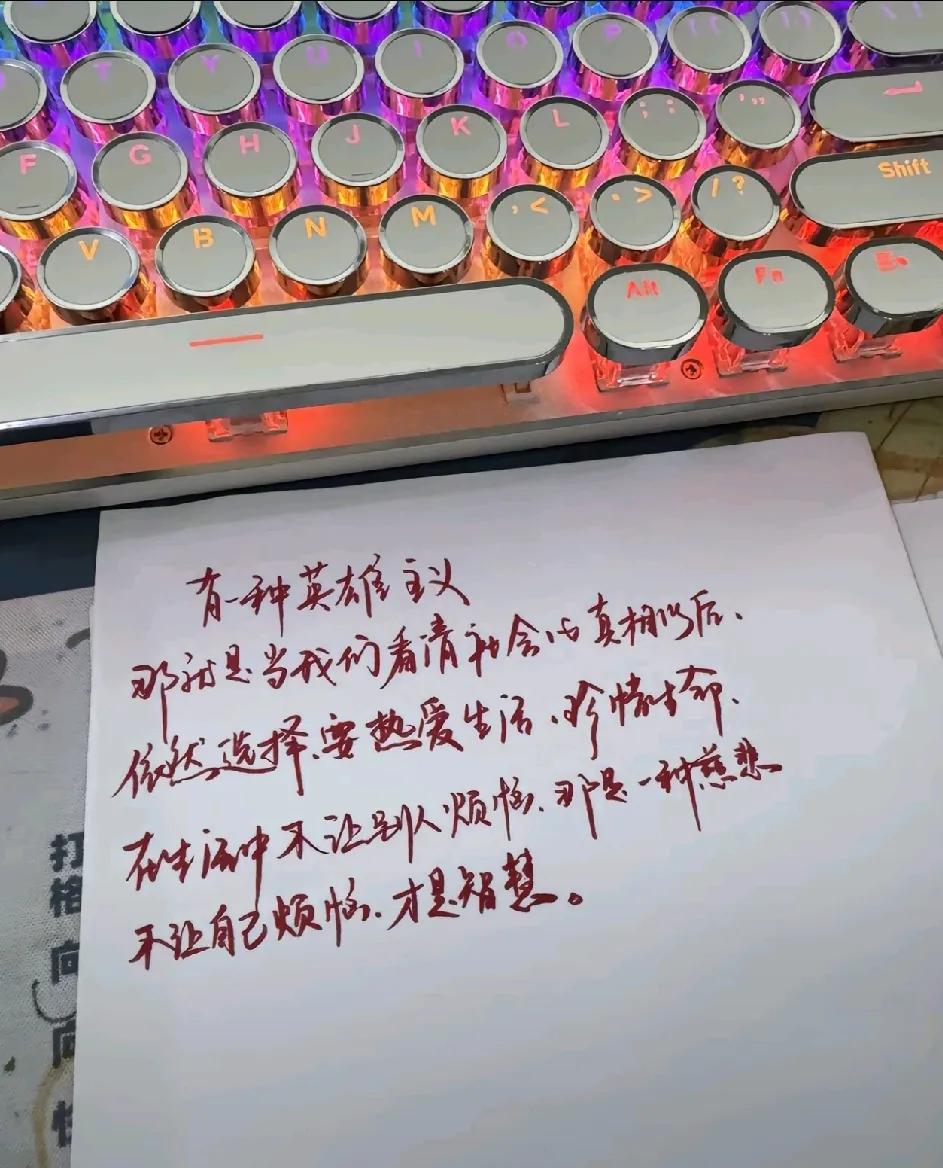 T Y U I O P
F G H J K L ; :
Shift
V B N M , < . > / ?
Alt Fn
有一种英雄主义
那就是当我们看清社会的真相以后、
依然选择、要热爱生活、珍惜生命、
在生活中不让别人烦恼、那是一种慈悲
不让自己烦恼、才是智慧。
打
格
向